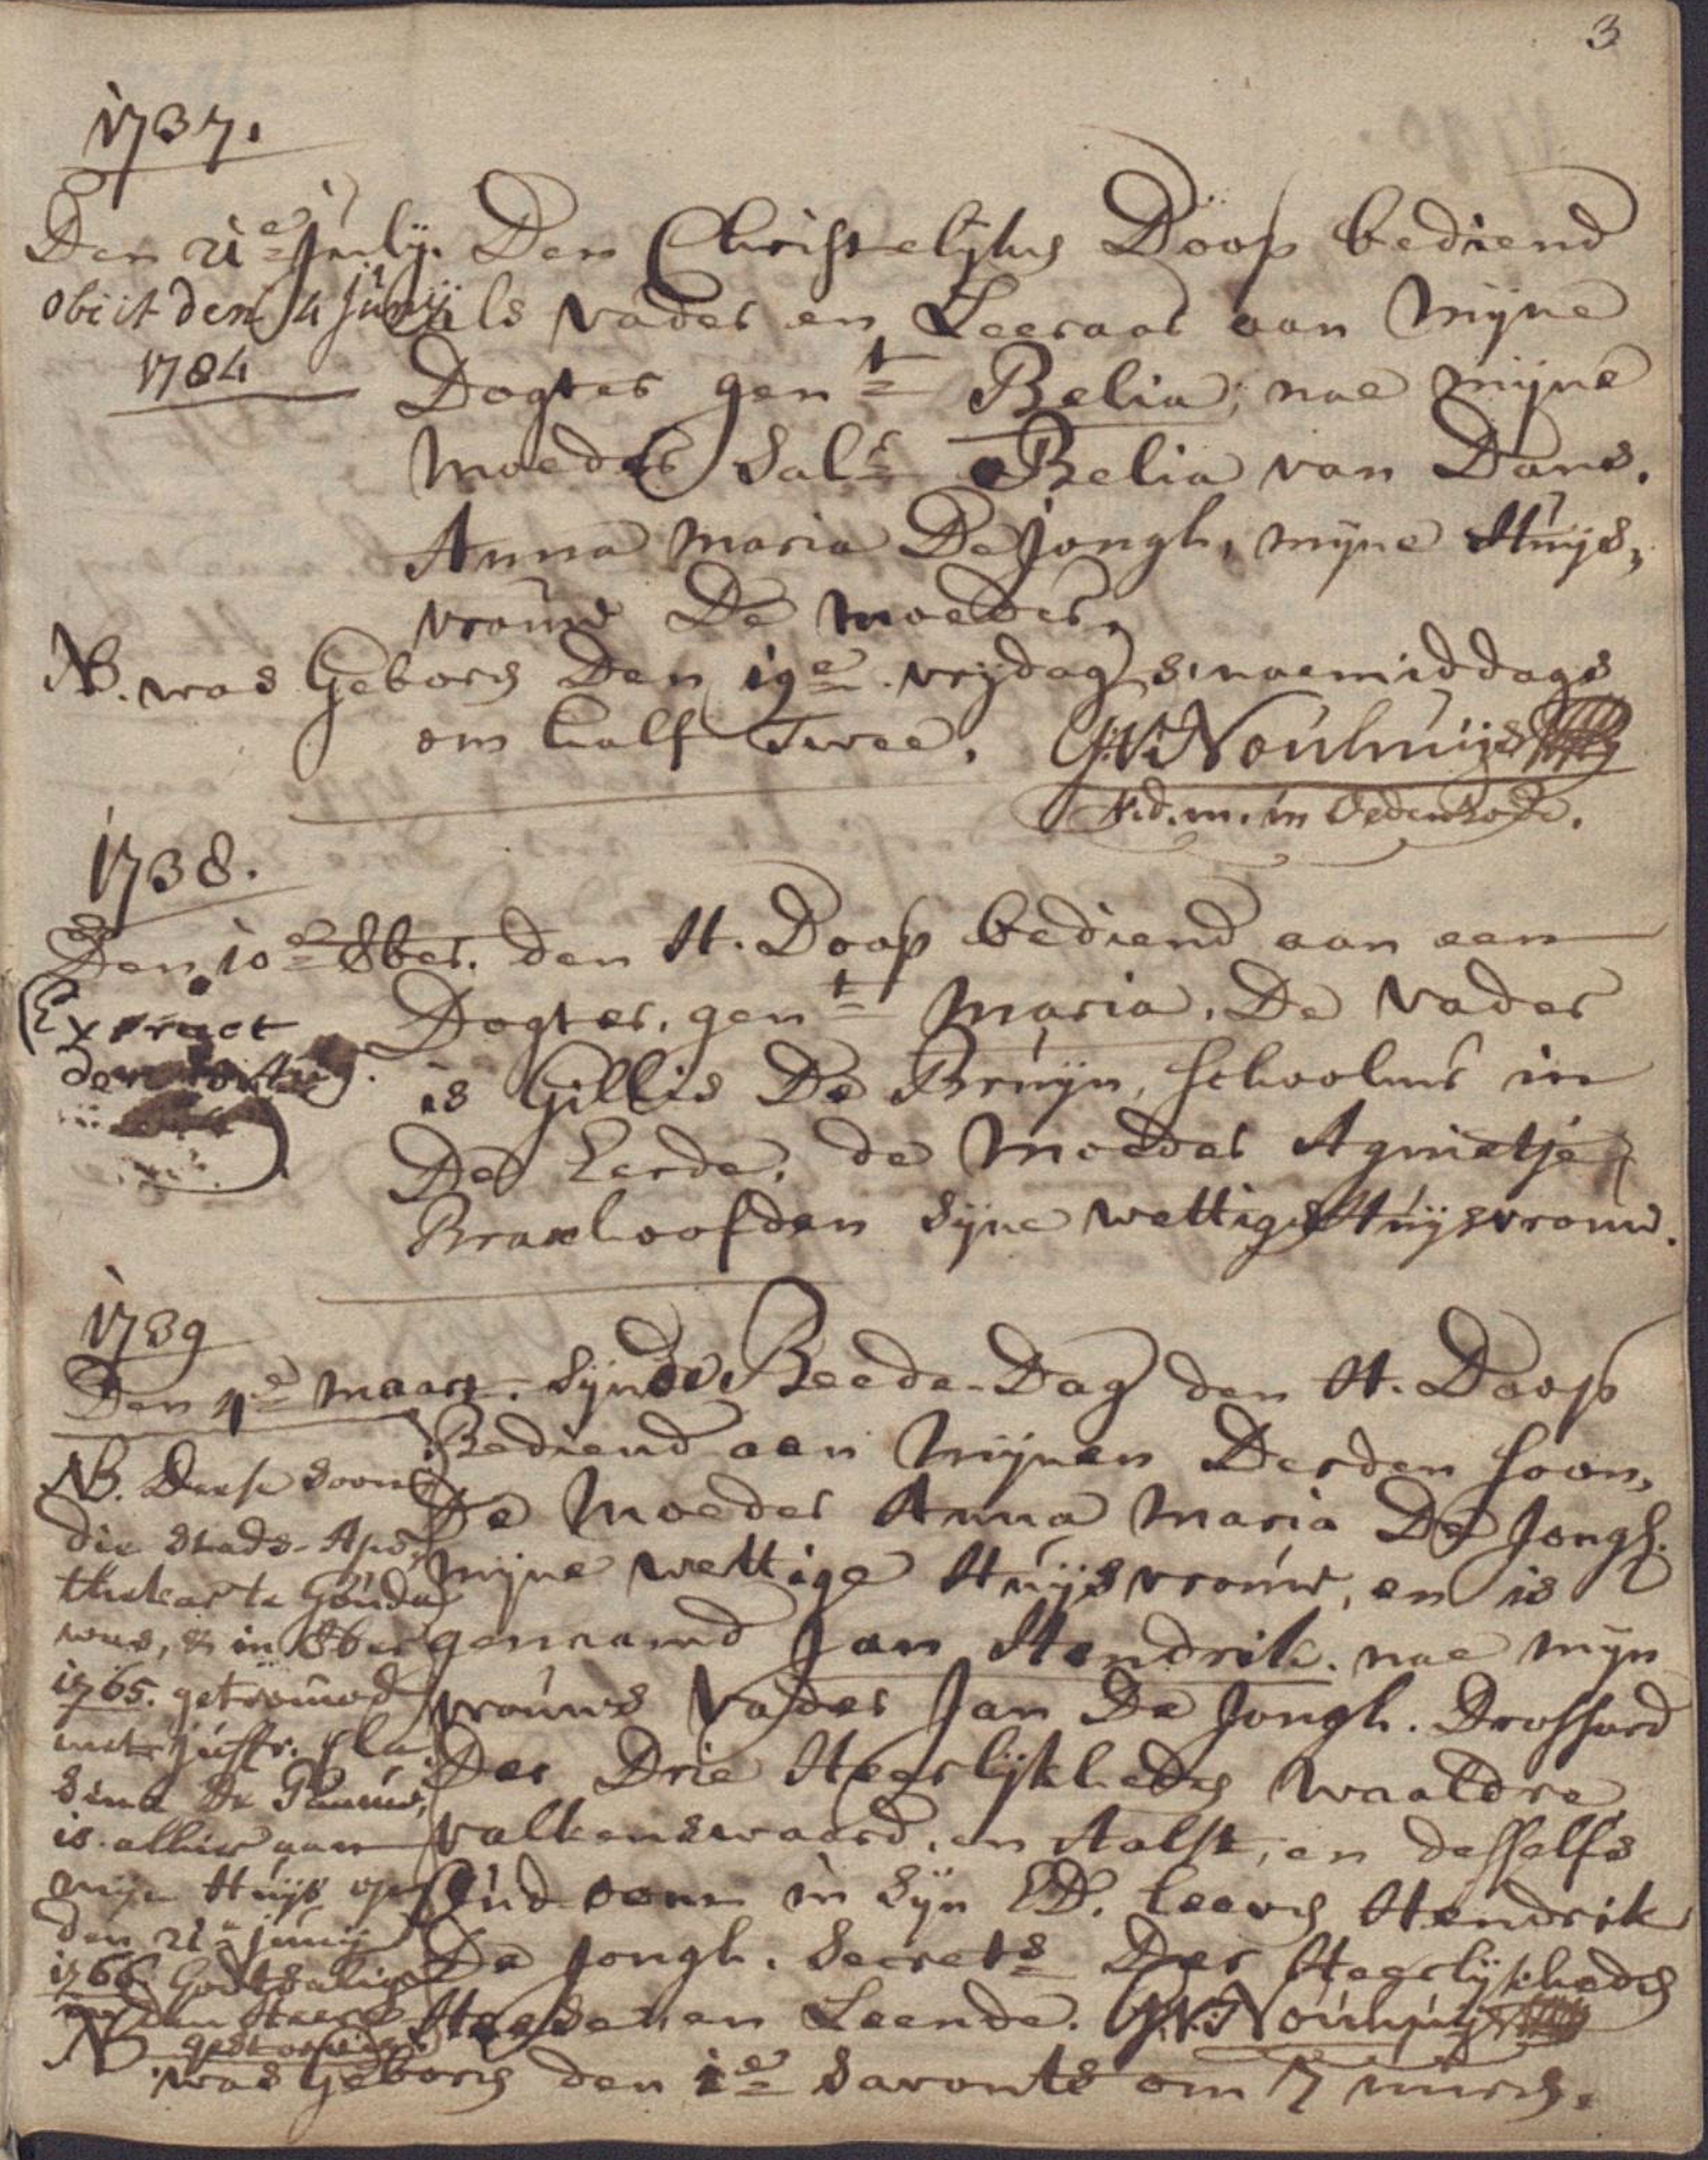 3
1737.
Den 21e Julij. Den Christelijken Doop bediend
als vader en Leeraar aan mijne
obiit den 4 Junij
1784
Dogter gent Belia, nae mijne
moeder Salr Belia van Dans.
Anna Maria De Jongh, mijne Huijs,
vrouw De moeder,
NB. was Geboren Den 19e vrijdag s' naemiddags
om half Twee. G.V. Nouhuijs
V.d.m. in Oedenrode.
1738.
Den 10e 8ber. den H. Doop bediend aan een
Dogter, gent Maria. De vader
is Gillis De Bruijn, schoolmr in
De Eerde. de moeder Agnietje
Braxhoofden sijne wettige Huijsvrouw.
(Extract
den
1739
Den 4e maart. sijnde Beede-Dag den H. Doop
Bediend aan mijnen Derden soon,
De moeder Anna Maria De Jongh.
mijne wettige Huijsvrouw, en is
genaamd Jan Hendrik. nae mijn
vrouws vader Jan De Jongh. Drossard
Der Drie Heerlijkheden waaldre
valkenswaard, en Aalst, en desselfs
Oud oom in sijn ED. leeven Hendrik
De Jongh. Secrets Der Heerlijkheden
Heese en Leende. G.V. Nouhuijs
NB. Deese soon
die stads-Apo,
theker te Gouda
was, & in 8ber
1765. getrouwd
met juffr. Cla
sina De
is alhier aan
mijn Huijs op
den 21e junij
1766 Godtsalig
in den Heere
gestorven.
NB was Geboren den 1e savonts om 7 uuren.